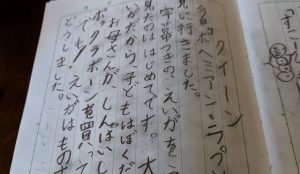 クイーン
今日「ボヘミアン・ラプソ
見に行きました。
字幕つきの、えいがを一
見たのははじめてです。大
いがだから、子どもはぼくだ
お母さんが、しんぱいし
を買って
でも、えいがはもの
どうしました。